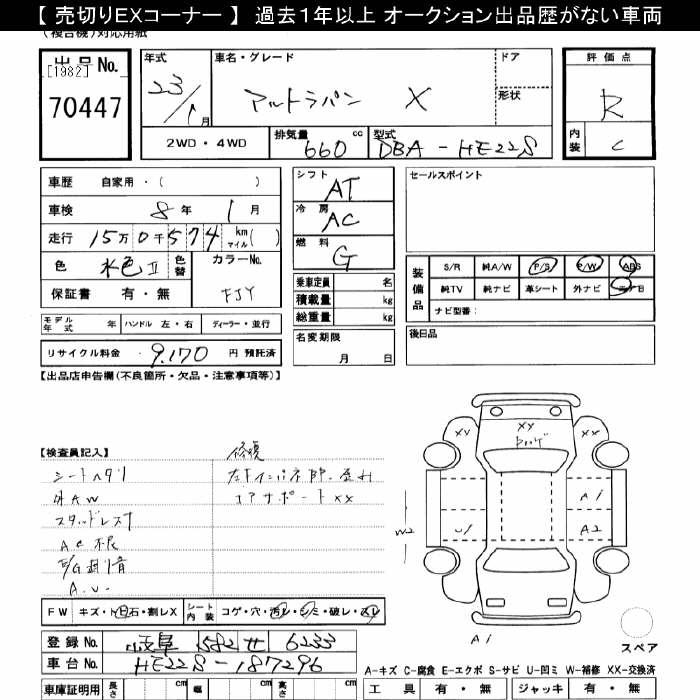 【 売切りEXコーナー 】 過去１年以上 オークション出品歴がない車両
(複合機)対応用紙
出品No.
[1982]
70447
年式
23/1月
車名・グレード
アルトラパン X
ドア
形状
評価点
R
内装
C
2WD・4WD
排気量
660
cc
型式
DBA-HE22S
車歴 自家用・( )
車検 8年 1月
走行 15万0千574 km マイル( )
色 水色II 色替
カラーNo.
FJY
保証書 有・無
シフト
AT
冷房
AC
燃料
G
乗車定員 名
積載量 kg
総重量 kg
名変期限
月 日
セールスポイント
装備品
S/R 純A/W P/S P/W ABS
純TV 純ナビ 革シート 外ナビ
ナビ型番:
後日品
モデル年式 年 ハンドル 左・右 ディーラー・並行
リサイクル料金 9,170 円 預託済
【出品店申告欄(不良箇所・欠品・注意事項等)】
【検査員記入】
修復
シートヘタリ
外AW
スタッドレス
コアサポートXX
XX
XX
XX
A1
A2
U1
W2
A1
スペア
FW キズ・ヒ石・割レX シート内装 コゲ・穴・汚レ・シミ・破レ・スレ
登録No. 岐阜 582 せ 6233
車台No. HE22S-187296
A-キズ C-腐食 E-エクボ S-サビ U-凹ミ W-補修 XX-交換済
車庫証明用 長さ cm 幅 cm 高さ cm
工具 有・無 ジャッキ 有・無